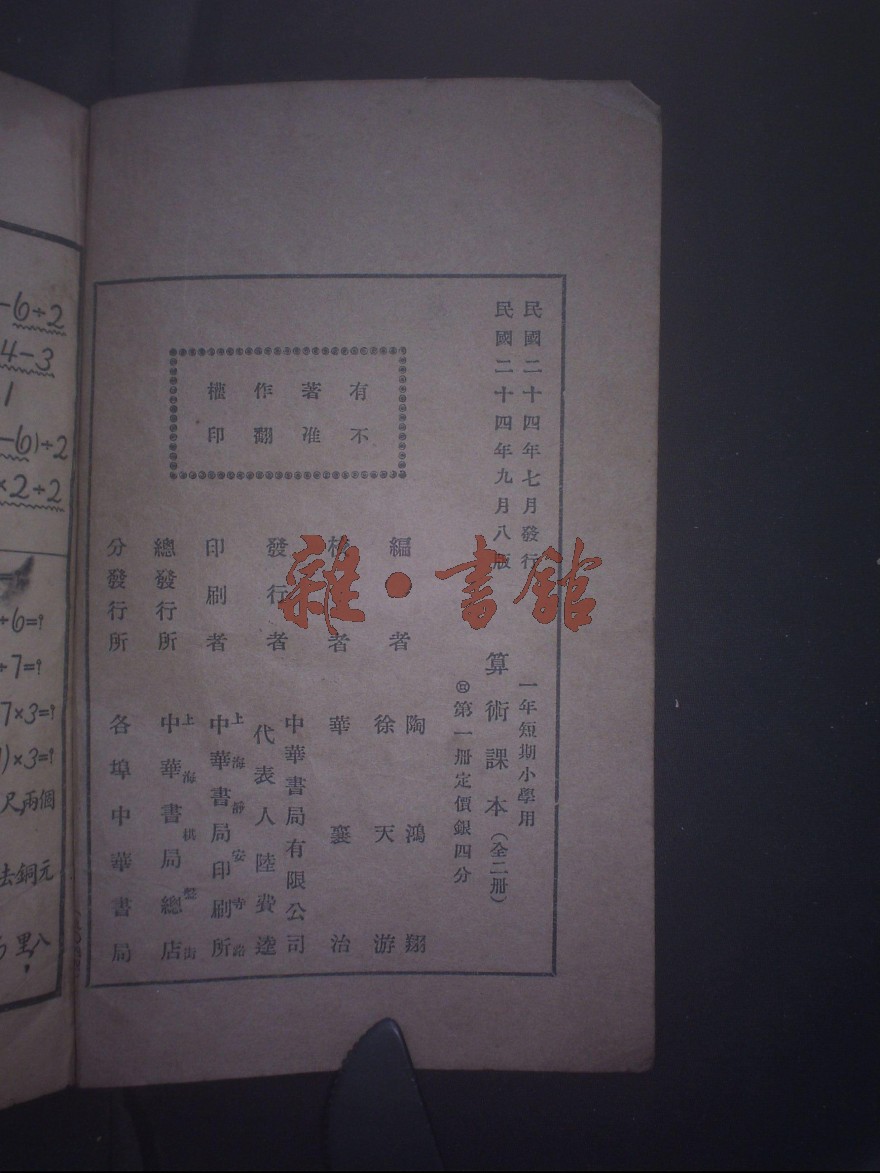 民國二十四年七月發行
民國二十四年九月八版
一年短期小學用
算術課本（全二冊）
第一冊定價銀四分
有著作權
不准翻印
編者 陶鴻翔
徐天游
校者 華襄治
發行者 中華書局有限公司
代表人 陸費逵
印刷者 上海靜安寺路
中華書局印刷所
總發行所 上海棋盤街
中華書局總店
分發行所 各埠中華書局
雜·書館
-6÷2
4-3
1
-6)÷2
×2÷2
+6=?
+7=?
7×3=?
)×3=?
尺,兩個
去銅元
里,八